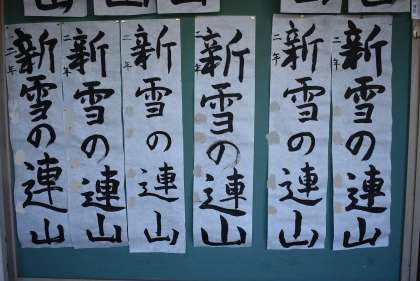 新雪の連山
二年
新雪の連山
二年
新雪の連山
二年
新雪の連山
二年
新雪の連山
二年
新雪の連山
二年
山
山